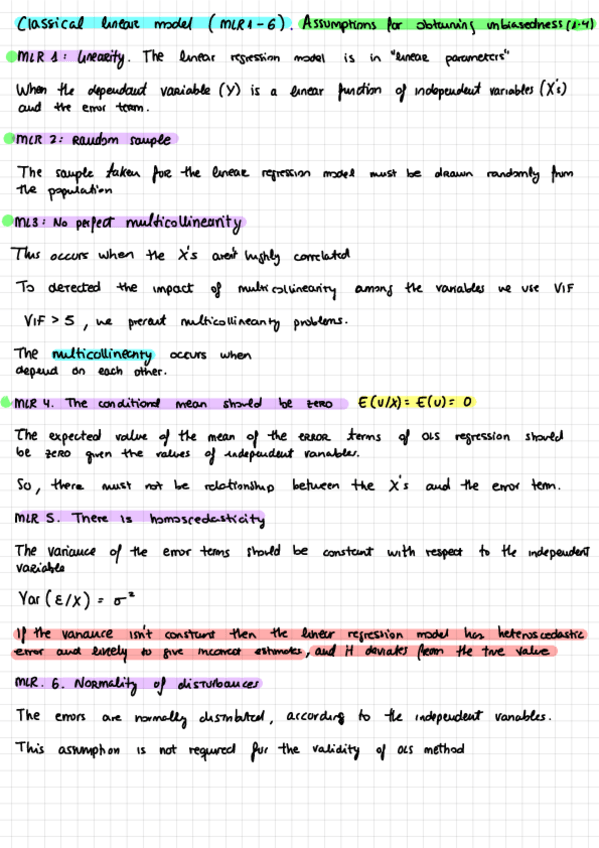 Classical linear model (MLR1-6). Assumptions for obtaining unbiasedness (1-4)
MLR 1: linearity. The linear regression model is in "linear parameters"
When the dependant variable (Y) is a linear function of independent variables (X's)
and the error term.
MLR 2: Random sample
The sample taken for the linear regression model must be drawn randomly from
the population
ML3: No perfect multicollinearity
This occurs when the X's aren't highly correlated
To detected the impact of multicollinearity among the variables we use VIF
VIF > 5, we present multicollinearity problems.
The multicollinearity occurs when
depend on each other.
MLR 4. The conditional mean should be zero E(u/x) = E(u) = 0
The expected value of the mean of the ERROR terms of OLS regression should
be zero given the values of independent variables.
So, there must not be relationship between the X's and the error term.
MLR 5. There is homoscedasticity
The variance of the error terms should be constant with respect to the independent
variable
Var (ε/X) = σ²
If the variance isn't constant then the linear regression model has heteroscedastic
error and likely to give incorrect estimates, and it deviates from the true value
MLR. 6. Normality of disturbances
The errors are normally distributed, according to the independent variables.
This assumption is not required for the validity of OLS method